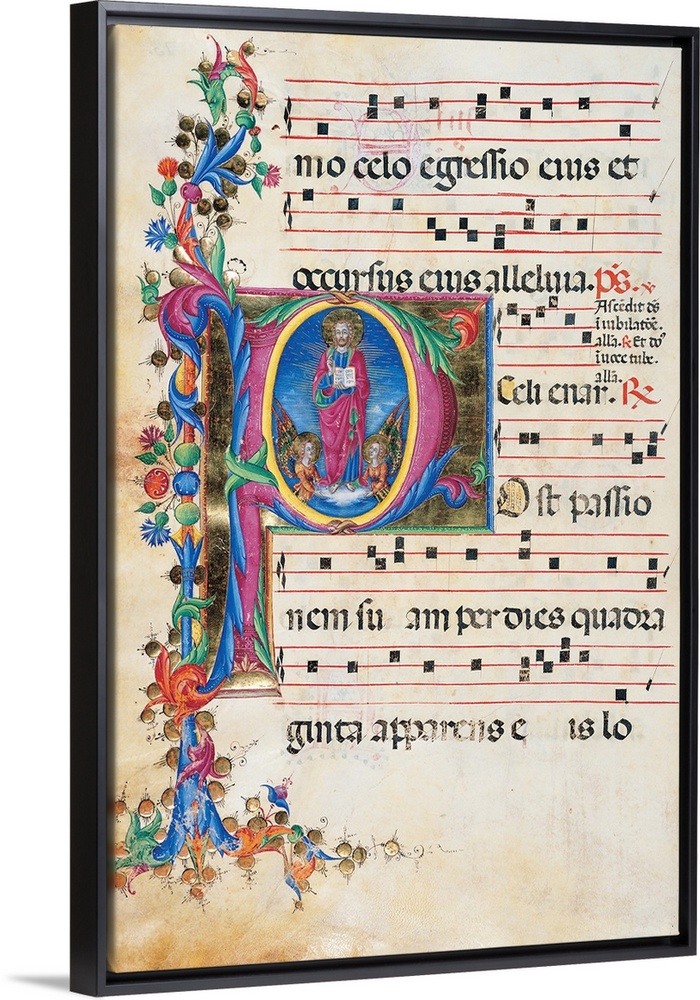 mo celo egressio eius et
occursus eius alleluia. ps.
Ascēdit ds̄
ī iubilatōe.
alla. R Et do͞
ī uoce tube.
alla.
Celi enar. R
P Ost passio
nem su am per dies quadra
ginta apparens e is lo